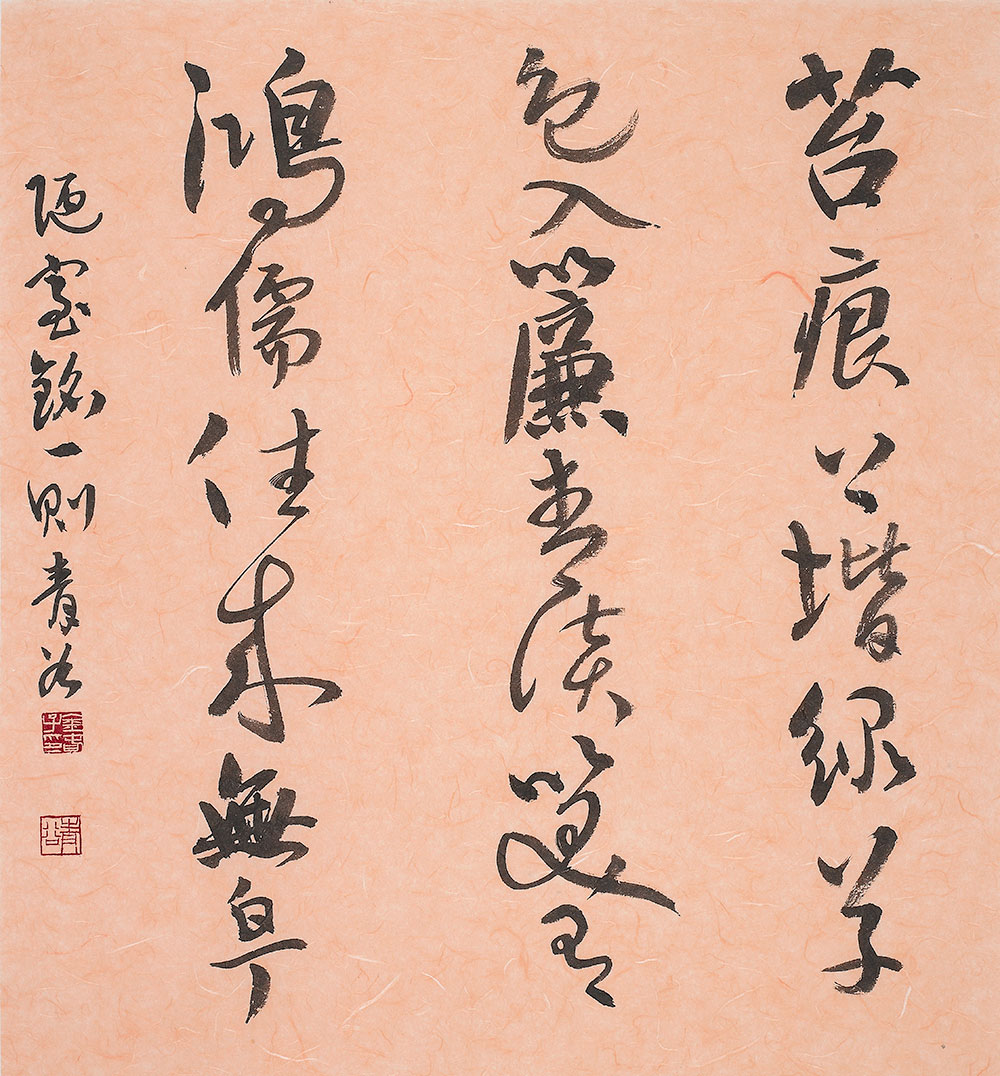 苔痕上堦綠草
色入簾青談笑有
鴻儒往来無白丁
陋室銘一則青谷
青谷